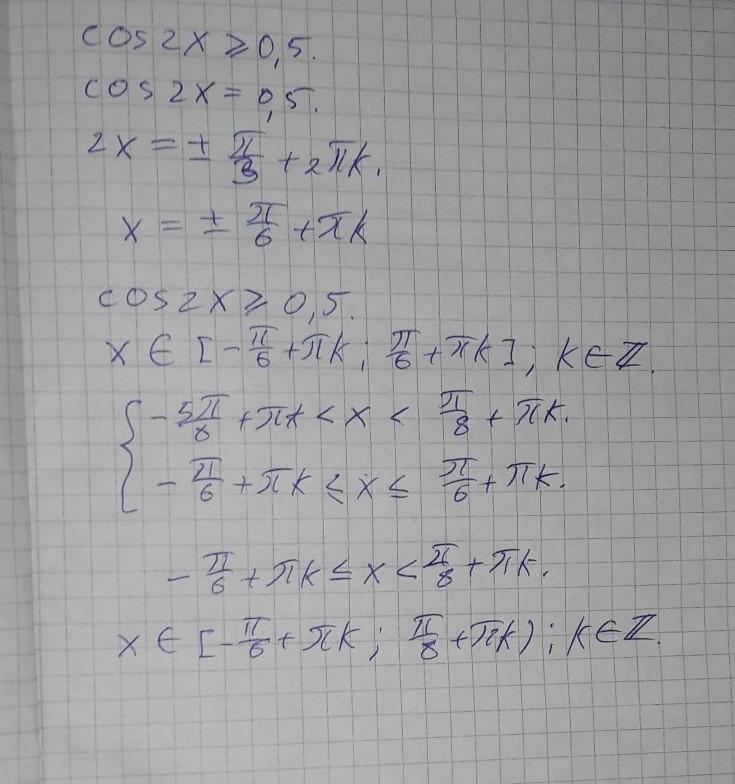 cos 2x ⩾ 0,5.
cos 2x = 0,5.
2x = ± π/3 + 2πk.
x = ± π/6 + πk
cos 2x ⩾ 0,5.
x ∈ [-π/6 + πk; π/6 + πk]; k ∈ ℤ.
{ -5π/8 + πk < x < π/8 + πk.
-π/6 + πk ≤ x ≤ π/6 + πk.
-π/6 + πk ≤ x < π/8 + πk.
x ∈ [-π/6 + πk; π/8 + πk); k ∈ ℤ.